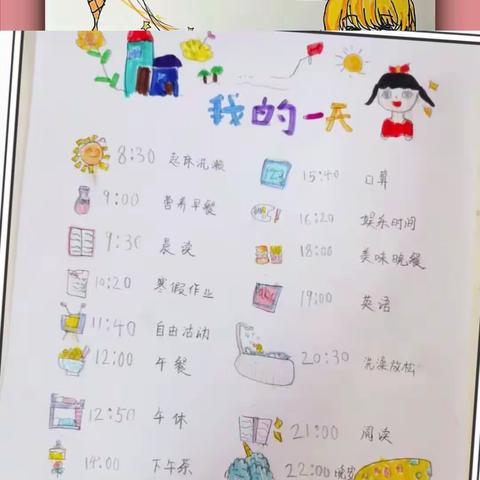 我的一天
8:30 起床洗漱
9:00 营养早餐
9:30 晨读
10:20 寒假作业
11:40 自由活动
12:00 午餐
12:50 午休
14:00 下午茶
15:40 口算
16:20 娱乐时间
18:00 美味晚餐
19:00 英语
20:30 洗澡放松
21:00 阅读
22:00 晚安